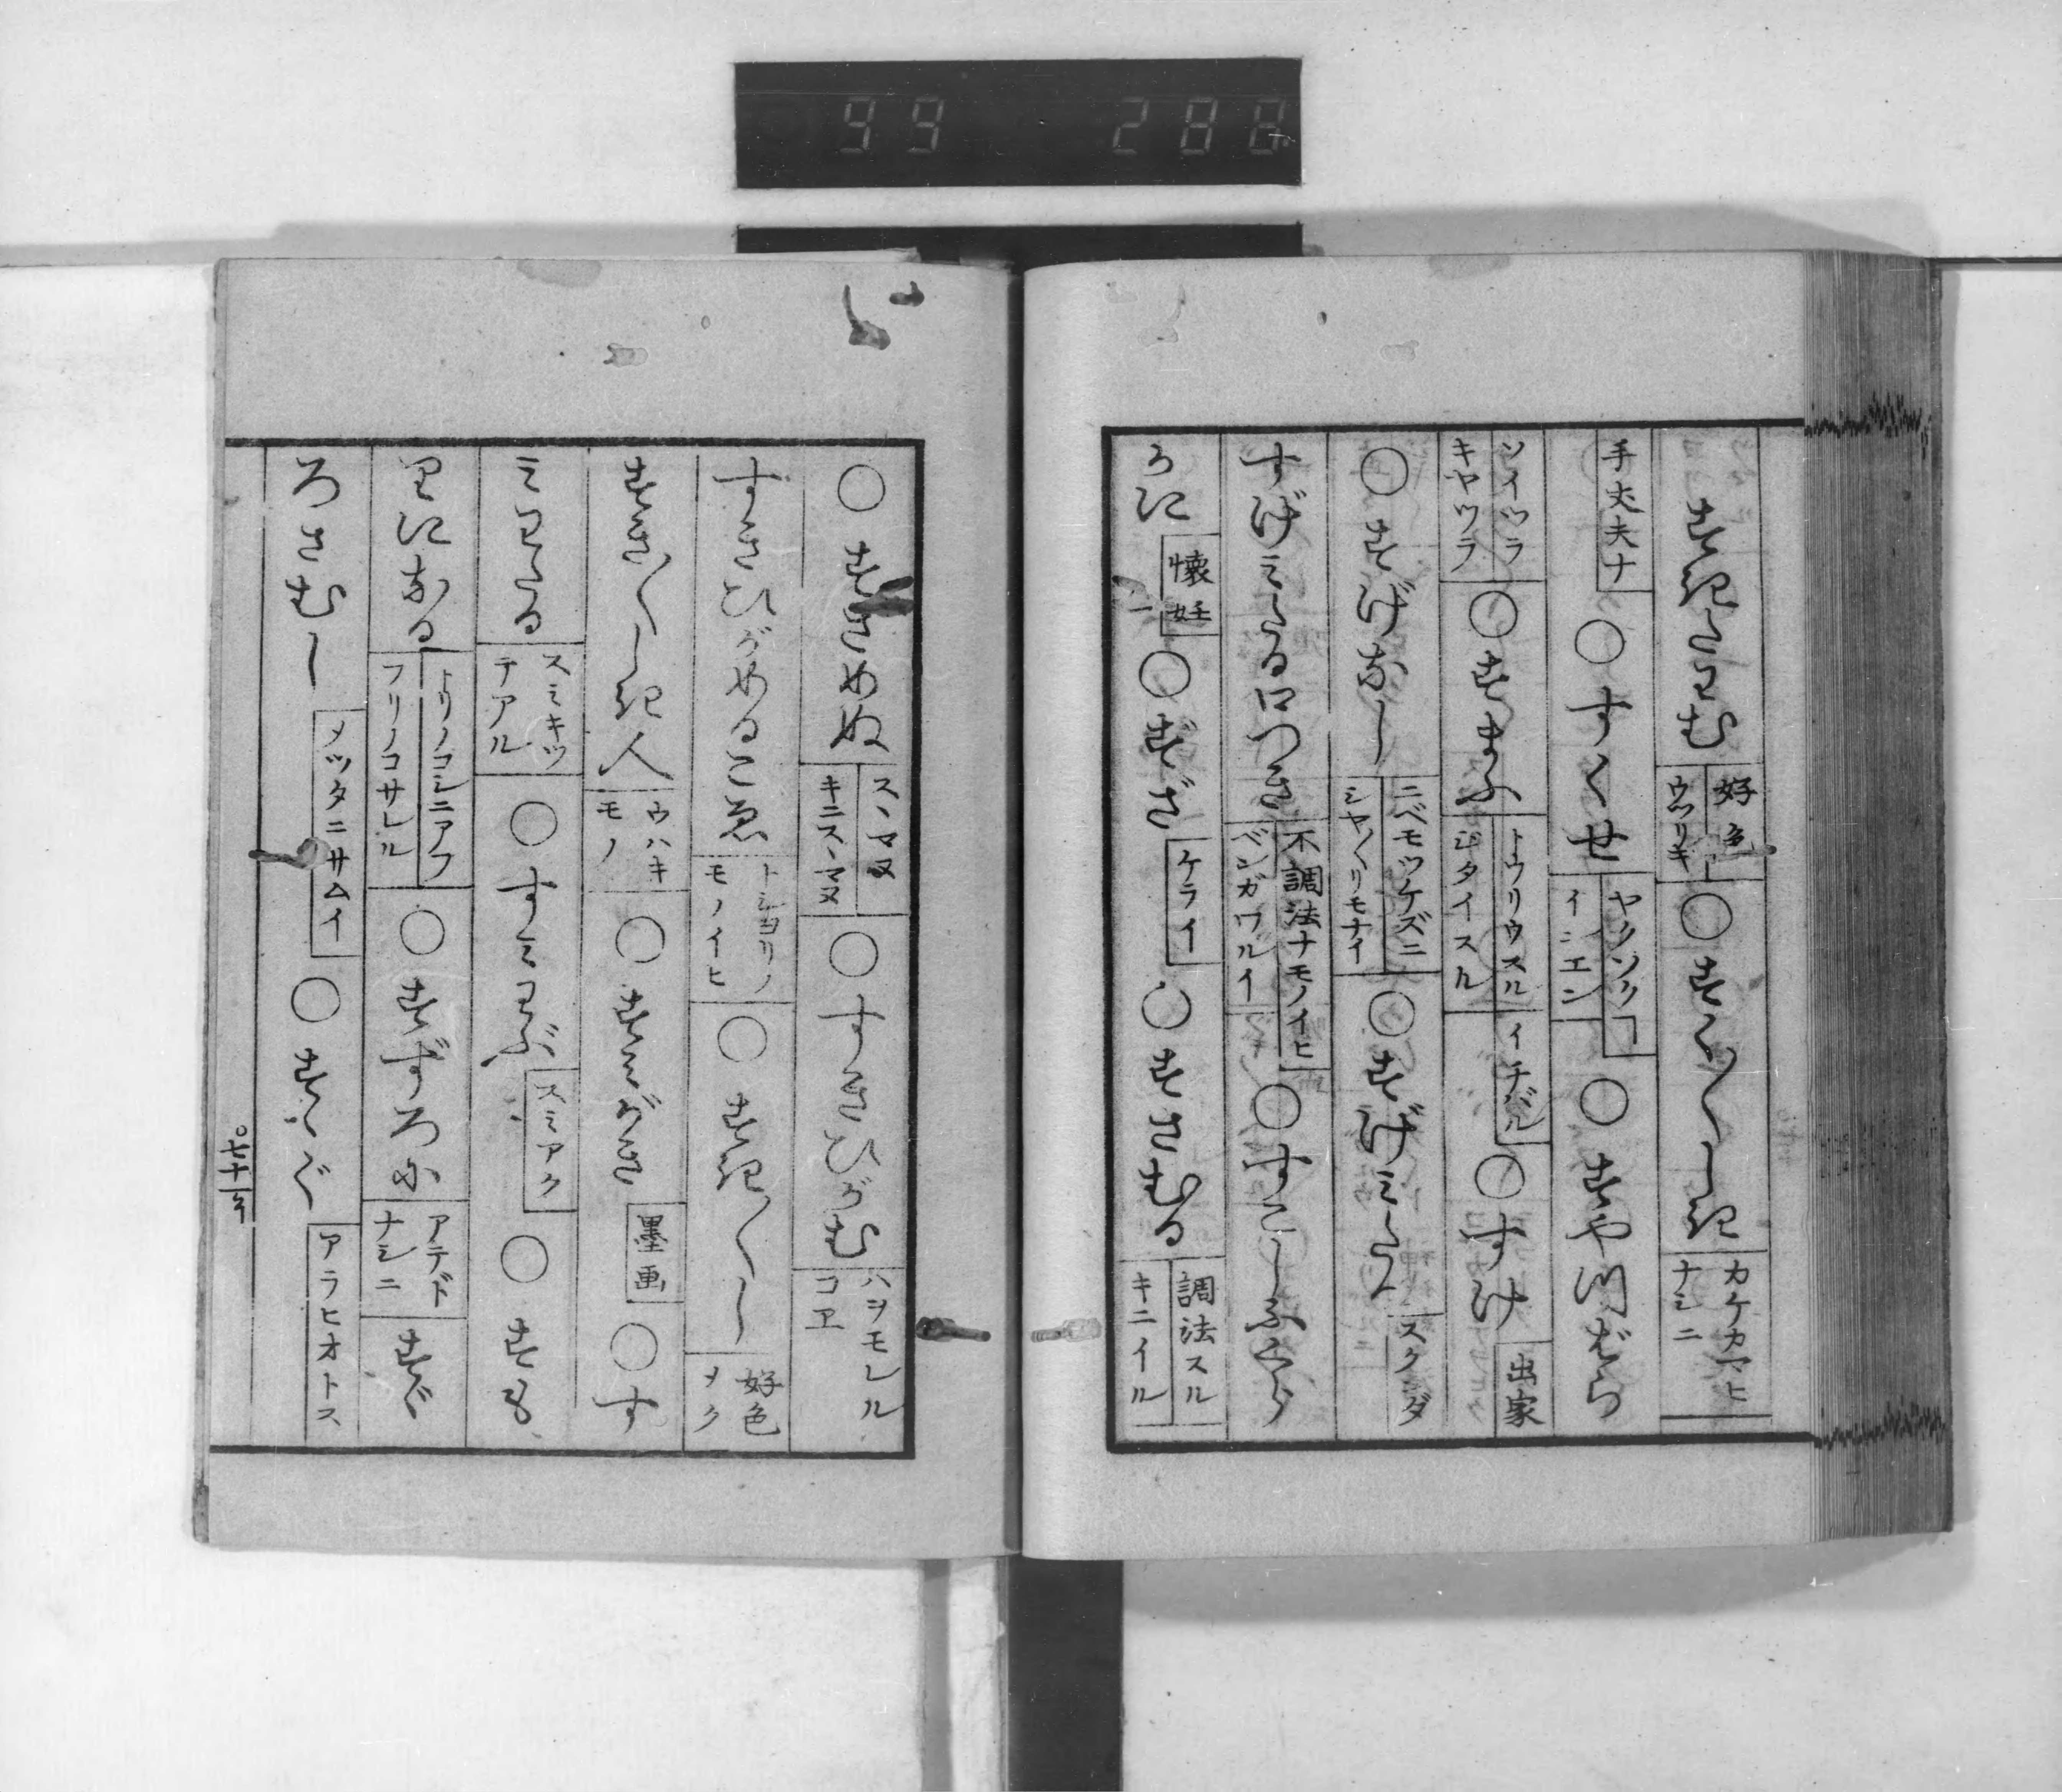 99 288
すきごゝむ 好色 ウツリギ ○すく〳〵しき カケカマヒ ナシニ
手丈夫ナ ○すくせ ヤクソク イシエン ○すやつばら
ソイツラ キヤツラ ○すまふ トウリウスル ジタイスル イチバル ○すけ 出家
○すげなし ニベモツケズニ シヤ〳〵リモナイ ○すげみ スクダ
すげみたる口つき 不調法ナモノイヒ ベンガワルイ ○すこしふくら
かに 懐妊 ○ずざ ケライ ○すさむる 調法スル キニイル
○すさめぬ スヽマヌ キニスヽマヌ ○すきひがむ ハヲモレル コヱ
すきひがめるこゑ トシヨリノ モノイヒ ○すき〴〵し 好色 メク
すき〴〵しき人 ウハキ モノ ○すみがき 墨画 ○す
みわたる スミキツ テアル ○すみわぶ スミアク ○すも
りになる トリノコシニアフ フリノコサレル ○すずろに アテドナシニ すゞ
ろさむし メツタニサムイ ○すゝぐ アラヒオトス
七十一